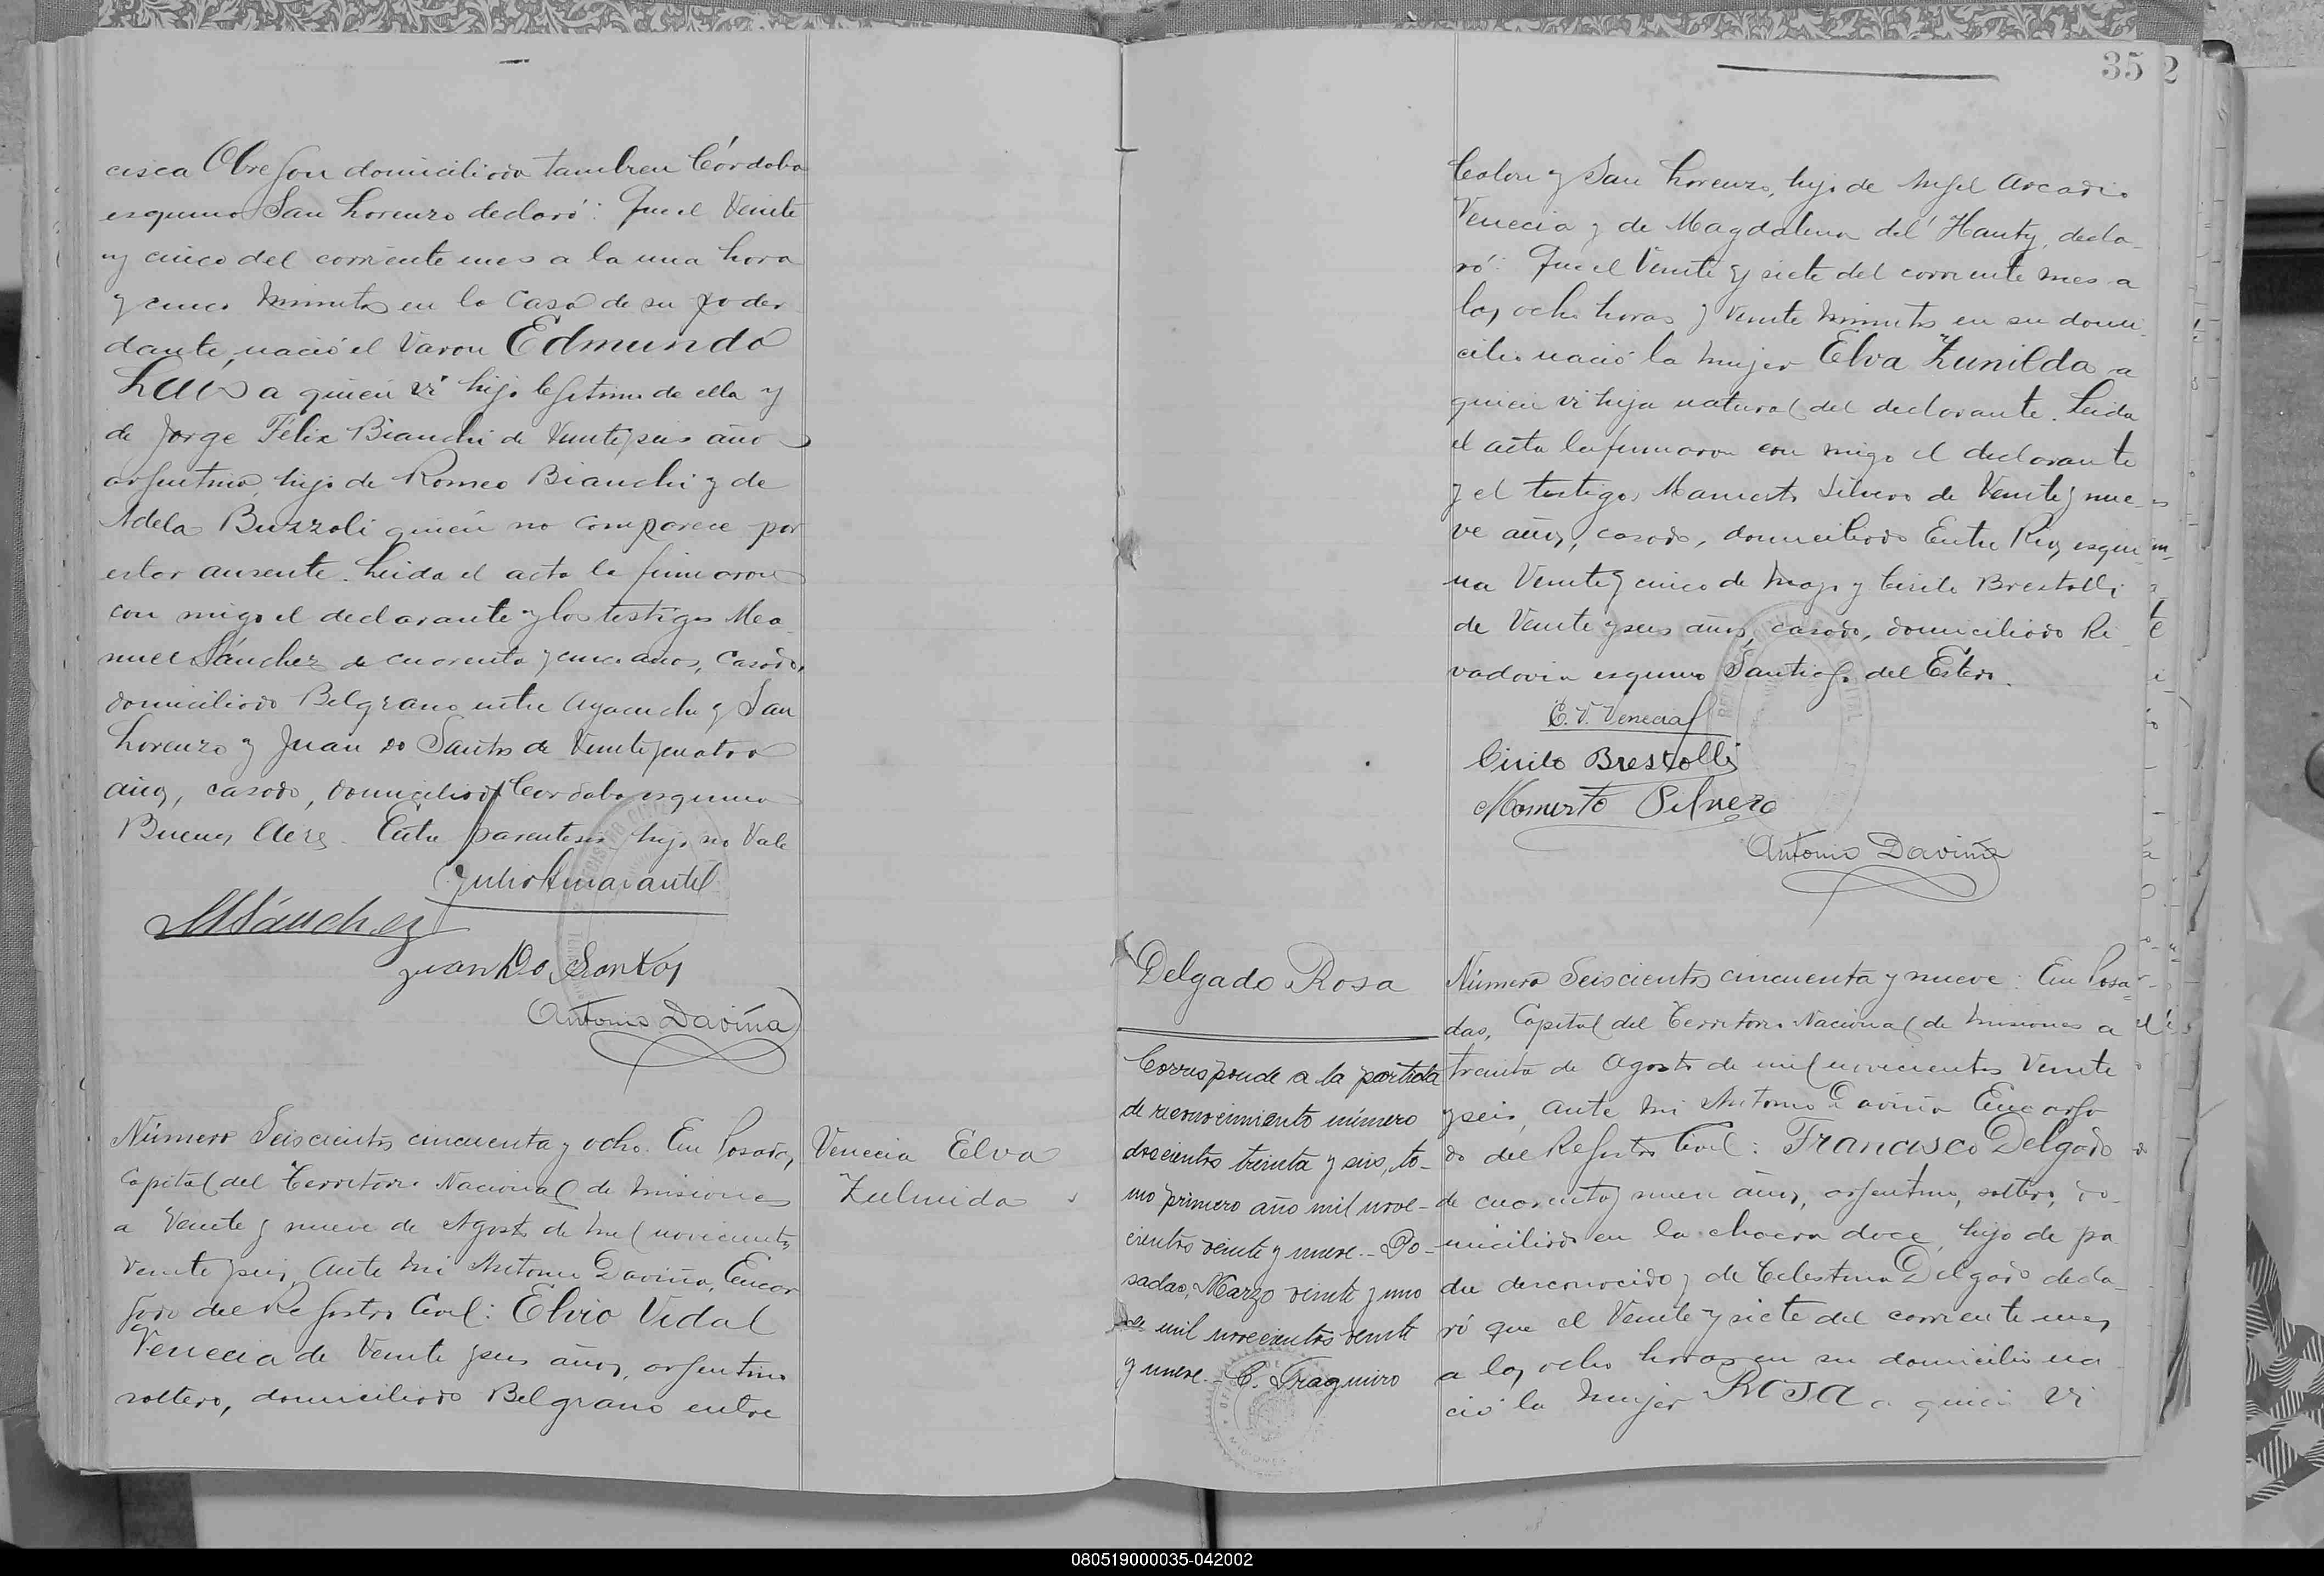 cisca Obregon domiciliada tambien Córdoba
esquina San Lorenzo declaró: Que el Veinte
y cinco del corriente mes a la una hora
y cinco minutos en la Casa de su poder
dante, nació el Varon Edmundo
Luis a quien vi hijo legitimo de ella y
de Jorge Félix Bianchi de Veinte y seis años
argentino, hijo de Romeo Bianchi y de
Adela Buzzoli quien no comparece por
estar ausente. Leida el acta la firmaron
con migo el declarante y los testigos Ma
nuel Sánchez de cuarenta y cinco años, casado,
domiciliado Belgrano entre Ayacucho y San
Lorenzo y Juan do Santos de Veinte y cuatro
años, casado, domiciliado Cordoba esquina
Buenos Aires. Entre parentesis hijo no Vale
Julio Amarante
MSánchez
Juan Do Santos
Antonio Daviña
Número Seiscientos cincuenta y ocho. En Posadas,
Capital del Territorio Nacional de Misiones
a Veinte y nueve de Agosto de mil novecientos
veinte y seis, Ante mi Antonio Daviña, Encar
gado del Registro Civil: Elvio Vidal
Venecia de Veinte y seis años, argentino
soltero, domiciliado Belgrano entre
Venecia Elva
Zulmida
35 2
Colon y San Lorenzo, hijo de Angel Arcadio
Venecia y de Magdalena del Hanty, decla-
ró: Que el Veinte y siete del corriente mes a
las ocho horas y veinte minutos en su domi-
cilio nació la mujer Elva Zunilda a
quien vi hija natural del declarante. Leida
el acta la firmaron con migo el declarante
y el testigo, Mamerto Silvero de Veinte y nue-
ve años, casado, domiciliado Entre Rios esqui-
na Veinte y cinco de Mayo y Cirilo Brestolli
de Veinte y seis años, casado, domiciliado Ri-
vadavia esquina Santiago del Estero.
E. V. Venecia
Cirilo Brestolli
Mamerto Silvero
Antonio Daviña
Delgado Rosa
Corresponde a la partida
de reconocimiento número
doscientos treinta y seis, to-
mo primero año mil nove-
cientos veinte y nueve.- Po-
sadas, Marzo veinte y uno
de mil novecientos veinte
y nueve.- C. Fragueiro
Número Seiscientos cincuenta y nueve: En Posa-
das, Capital del Territorio Nacional de Misiones a
treinta de Agosto de mil novecientos Veinte
y seis, ante mi Antonio Daviña Encarga
do del Registro Civil: Francisco Delgado
de cuarenta y nueve años, argentino, soltero, do-
miciliado en la chacra doce, hijo de pa
dre desconocido y de Celestina Delgado decla-
ró que el Veinte y siete del corriente mes
a las ocho horas en su domicilio na
ció la mujer Rosa a quien vi
080519000035-042002